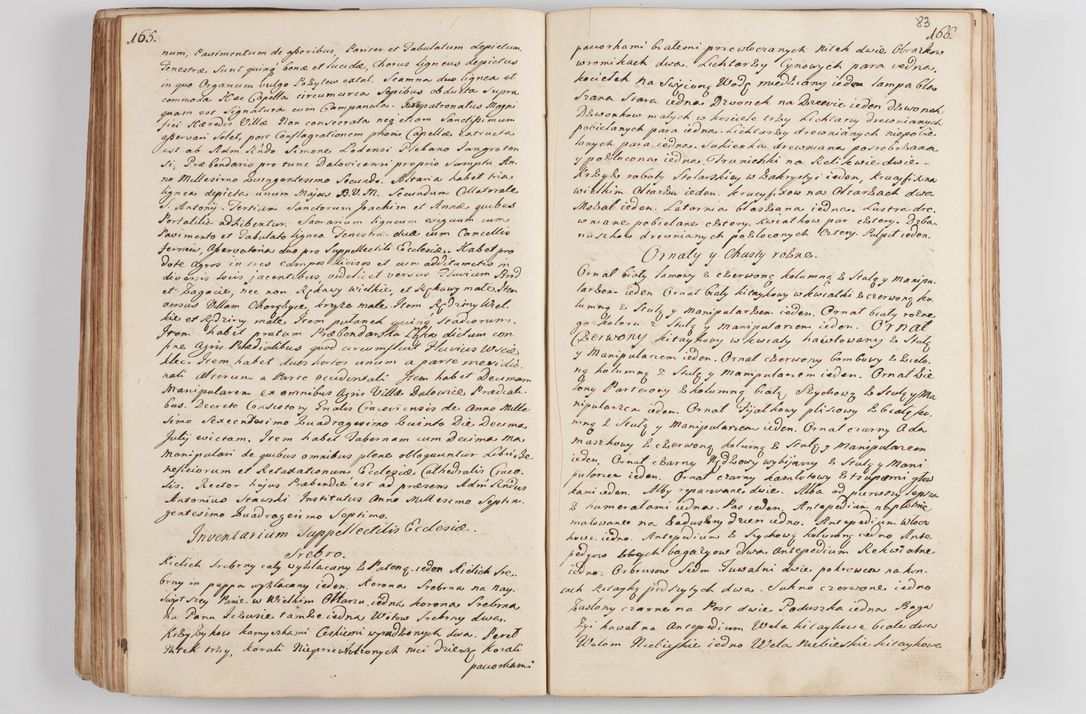 165.
num. Pavimentum de asseribus. Pariter et Tabulatum depictum.
Fenestræ Sunt quinq̃ bonæ et lucidæ, Chorus ligneus depictus
in quo Organum vulgo Pozytew extat. Scamna duo lignea et
commoda Hæc Capella circumcirca Sepibus obducta Supra
quam est Signatura cum Campanula. Juispatronatus Magni
fici Hæredis Villæ Non consecrata neq̃ etiam Sanctissimum
asservari Solet, post Conflagrationem prioris Capellæ Extructa
est ab Adm. Rndo Simone Plebano
si, Præbendario pro tunc Dalovicensi proprio Sumptu An-
no Millesimo Secundo. Altaria habet tria
lignea depicta unum Majus B.V.M. Secundum Collaterale
S. Antonij. Tertium Sanctorum Joachim et Annæ quibus
Portatilia adhibentur. Sacrarium ligneum exiguum cum
Pavimento et Tabulato ligneo Fenestræ duæ cum Cancellis
ferreis, Asservatoria duo pro Suppellectili Ecclesiæ. Habet pro
dote Agros in tres campos divisos et cum additamentis in
diversis locis jacentibus videlicet versus Fluvium
et Zagacie, nec non Rękawy wielkie, et Rękawy małe Ite
versus Villam kryże małe Item Rędziny Wiel-
kie et Rędziny małe Item putanek quinq̃ Stadiorum.
Item habet pratum Præbendarska Łąka dictum con
fine Agris Prædialibus quod circumfluit Fluvius
Item habet duos hortos unum a parte meridio-
nali Alterum a Parte occidentali Item habet Decimam
Manipularem ex omnibus Agris Villæ Dalovice Prædiali-
bus. Decreto Consistory Gnalis Cracoviensis de Anno Mille
simo Sexcentesimo Quadragesimo Quinto Die Decima
Julij evictam. Item habet Tabernam cum Decima Ma
Manipulari de quibus omnibus plene obloquuntur Libri Be-
neficiorum et Retaxationum Ecclesiæ Cathedralis Craco-
sis. Rector hujus Præbendæ est ad præsens Adm Rndus
Antonius Stawski Institutus Anno Millesimo Septin-
gentesimo Quadragesimo Septimo.
Inventarium Suppellectilis Ecclesiæ.
Srebro.
Kielich Srebrny cały wyzłacany z Pateną ieden Kielich Sre-
brny in puppa wyzłacany ieden. Korona Srebrna na Nay-
świętszey Panie w Wielkim Ołtarzu iedna korona Srebrna
na Panu Jezusie tamże iedna Wotow Srebrny dwa.
Krzyżykow kamyszkami Czeskiemi wysadzonych dwa. Pereł
Nitek trzy, korali Nieprzewłoczonych nici dziewięć korali
paciorkami
83
166.
paciorkami białemi przewłoczanych nitek dwie. Obrazkow
w romikach dwa. Lichtarzy Cynowych para iedna,
kociełek na Swięconą Wodę miedziany ieden lampa bla
szana Stara iedna Dzwonek na Drzewie ieden Dzwonek
Dzwonkow małych w kościele trzy Lichtarzy drewnianych
pobielanych para iedna. Lichtarzy drewnianych niepobie-
lanych para iedna. Sukienka drewniana posrebrzana
y pozłocona iedna. Trunichki na Relikwie dwie-
Krzyże roboty Stolarskiey w Zakrystyi ieden, krucyfix na
wielkim Ołtarzu ieden. krucyfixow na Ołtarzach dwa
Mszał ieden. Latarnia blaszana iedna. Lustra dre-
wniane pobielane cztery. Kwiatkow par cztery. Dzba
nuszkow drewnianych pozłoconych cztery. Pulpit ieden.
Ornaty y Chusty rożne.
Ornat biały lamowy z czerwoną kolumną z Stułą y Manipu-
larzem ieden Ornat biały kitaykowy w kwiatki z czerwoną ko-
lumną z Stułą y Manipularzem ieden. Ornat biały rożne-
go koloru z Stułą y manipularzem ieden. Ornat
Czerwony kitaykowy w kwiaty haiwtowany z Stułą
y Manipularzem ieden. Ornat czerwony z zielo-
ną kolumną z Stułą y manipularzem ieden. Ornat Zie-
lony Parterowy z kolumną białą z Stułą y Ma-
nipularzem ieden. Ornat Fijałkowy plisowy z białą ko-
mną z Stułą y Manipularzem ieden. Ornat czarny Ada
maszkowy z czerwoną kolumną z Stułą y Manipularzem
ieden. Ornat czarny wybijany z Stułą y Mani-
pularzem ieden. Ornat czarny kamlotowy z trupiemi głow
kami ieden. Alby reparowane dwie. Alba od pierwszey lepsza
z humerałami iedna. Pas ieden. Antepedium na płotnie
malowane na Zaduszny dzień iedno. Antepedium włocz
kowe iedno. Antepedium z kolumną iedno Ante-
pedyow bagazyowe dwa. Antepedium Rekwialne
iedno. Obrusow Siedm Tuwalni dwie pokrowcow na kon-
cach kitayką podszytych dwa. Sukno czerwone iedno
Zasłony czarne na Post dwie Poduszka iedna Baga
zyi kawał na Antepedium Wela kitaykowe białe dwa
Welom Niebieskie iedno Wela Niebieskie kitaykowe